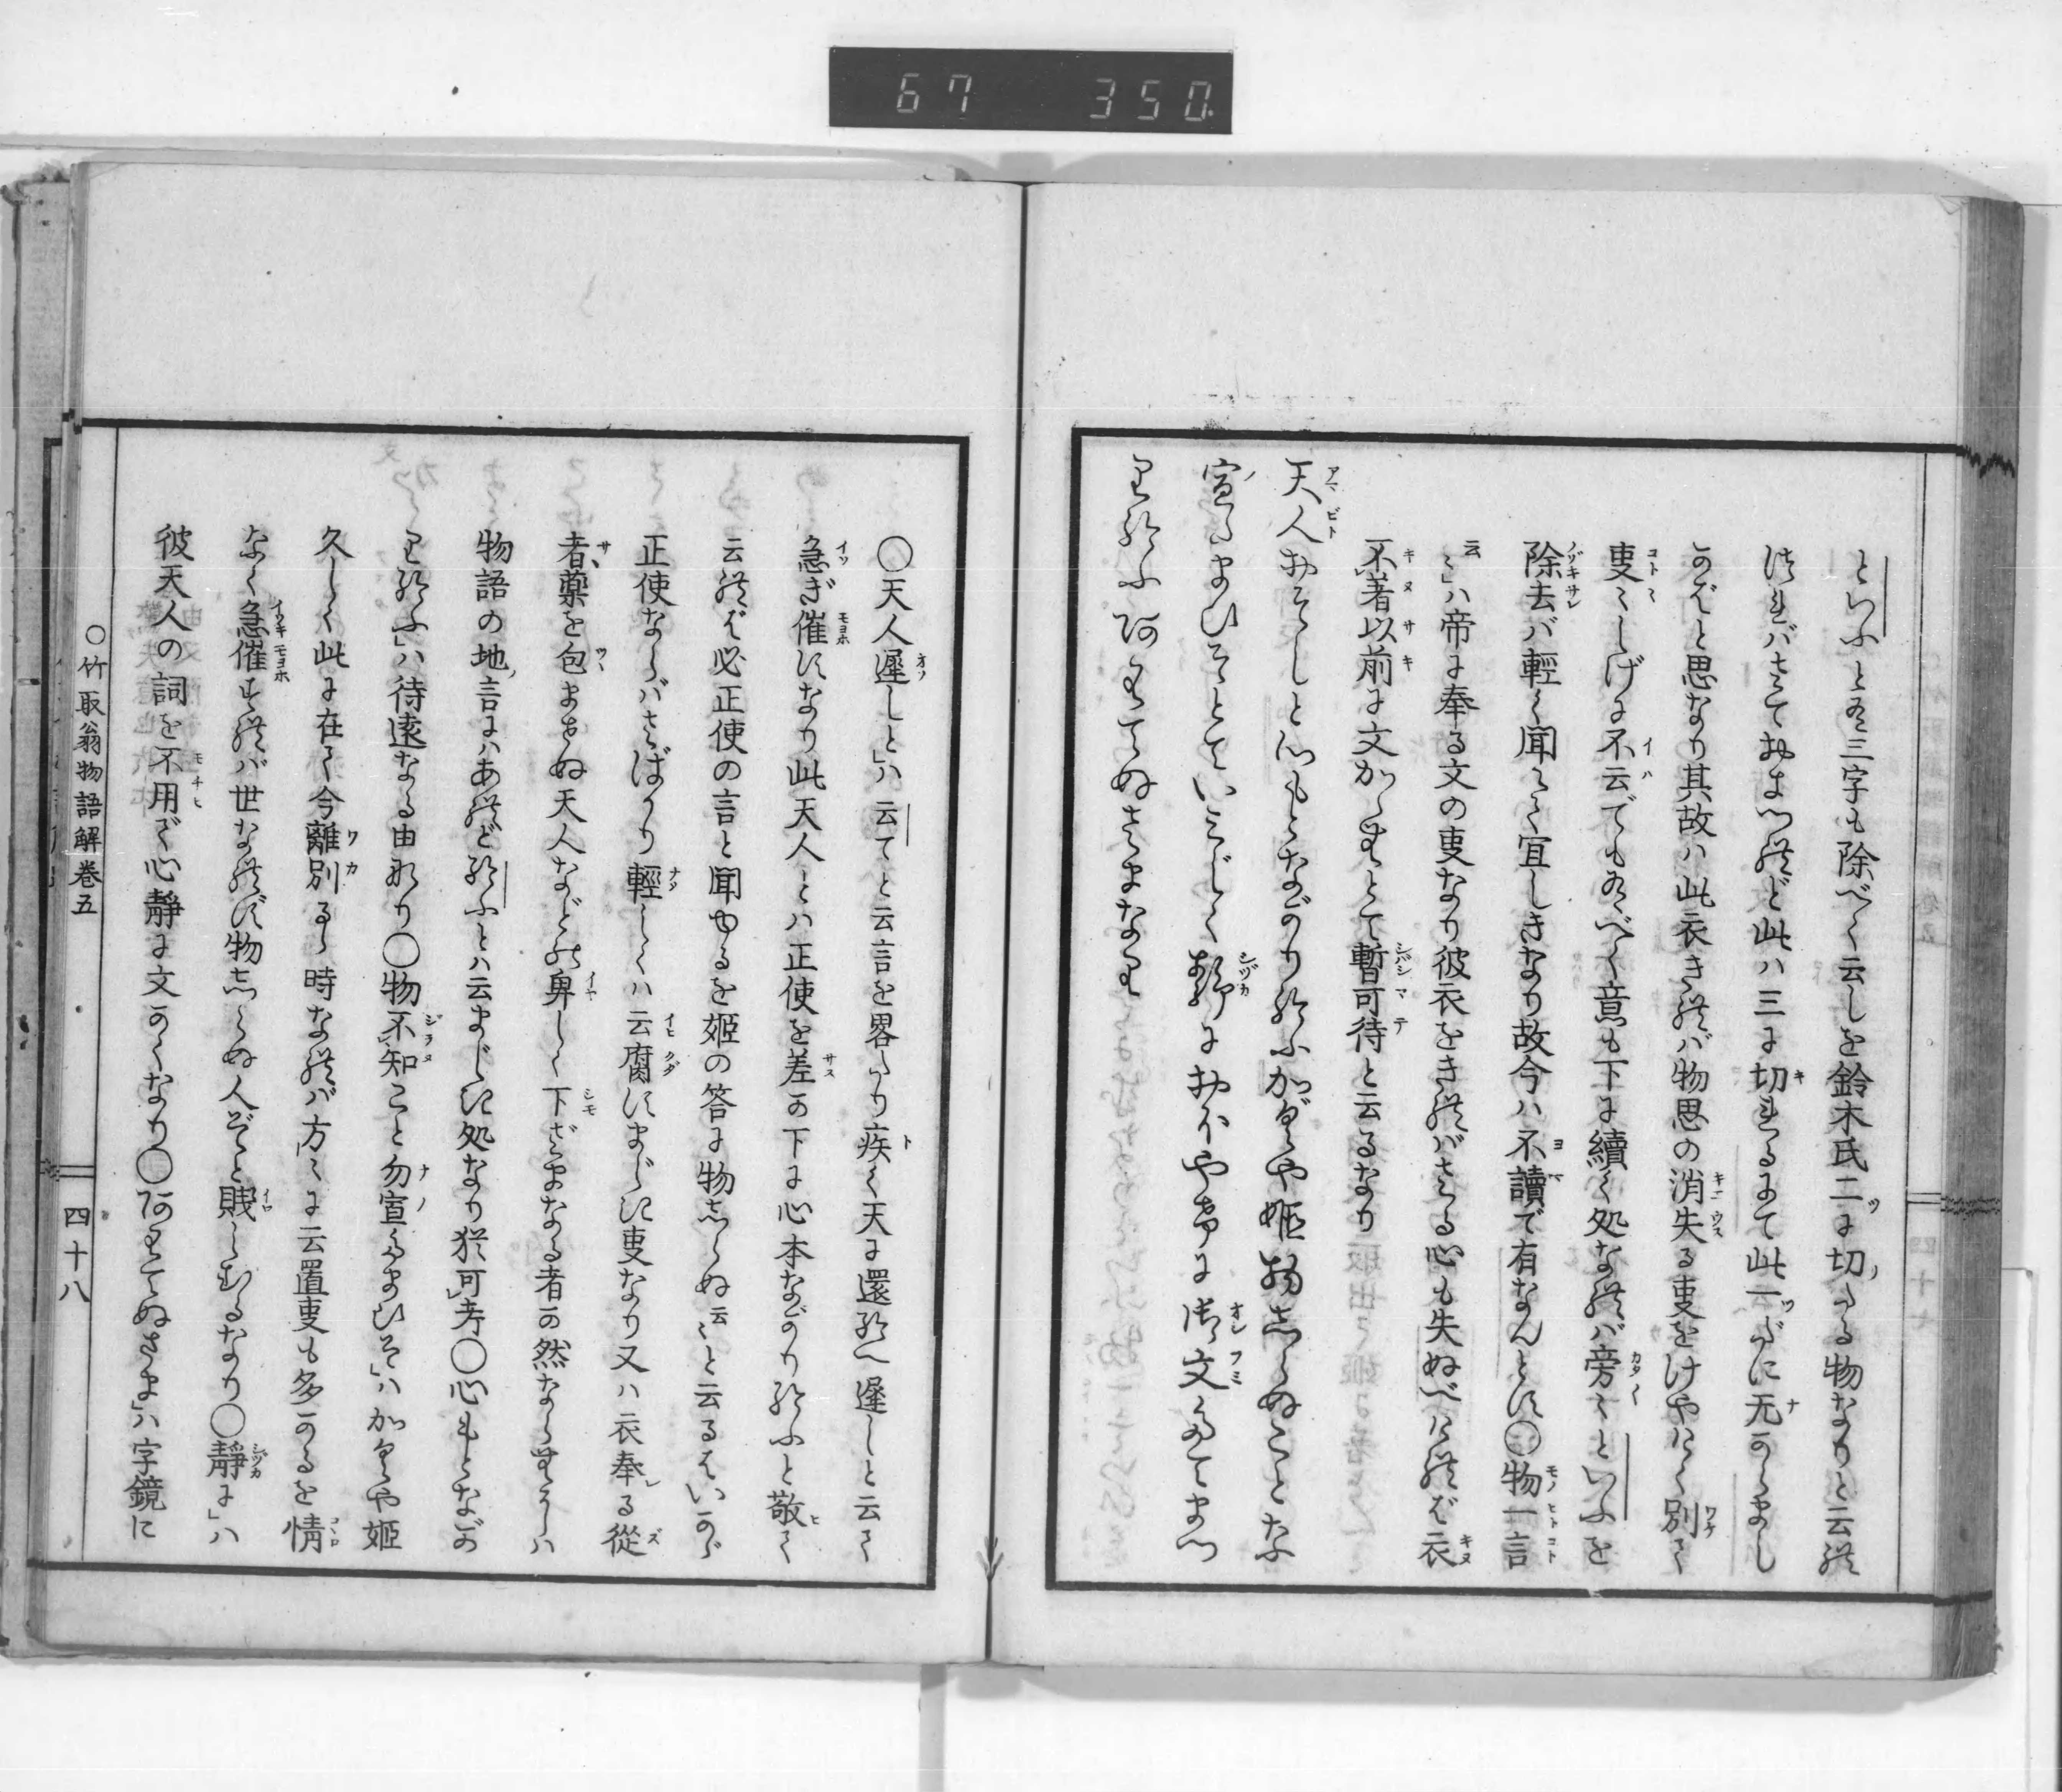 67 350
といふと有三字も除べく云しを鈴木氏二に切たる物なりと云れ
つればさておきつれど此は三に切れるにて此一つだに无からまし
かばと思なり其故は此衣き給ば物思の消失る事をけやけく別て
事〻しげに不云でも有べく意も下に續く処なれば旁〻といふを
除去ば輕く聞えて宜しきなり故今は不讀で有なんとす〇物一言
云〻は帝に奉る文の事なり彼衣をき給ばさる心も失ぬべければ衣
不著以前に文かゝむとて暫可待と云るなり
天人おそしと心もとながり給ふかぐや姫物しらぬことなの
宣たまひそとていみじく靜におほやけに御文たてまつ
り給ふあわてぬさまなり
〇天人遲しとは云てと云言を畧たり疾く天に還給へ遲しと云て
急ぎ催すなり此天人とは正使を差か下に心本ながり給ふと敬て
云れば必正使の言と聞ゆるを姫の答に物しらぬ云〻と云るはいかゞ
正使ならばさばかり輕しくは云腐すまじき事なり又は衣奉る從
者藥を包ませぬ天人などの卑しく下ざまなる者か然ならむには
物語の地言にはあれど給ふとは云まじき処なり猶可考〇心もとなが
り給ふは待遠なる由なり〇物不知こと勿宣たまひそはかぐや姫
久しく此に在て今離別るゝ時なればが方〻に云置事も多かるを情
なく急催すればが世なれず物しらぬ人ぞと賎しむるなり〇靜には
彼天人の詞を不用で心靜に文かくなり〇あわてぬさまは字鏡に
〇竹取翁物語解卷五
四十八